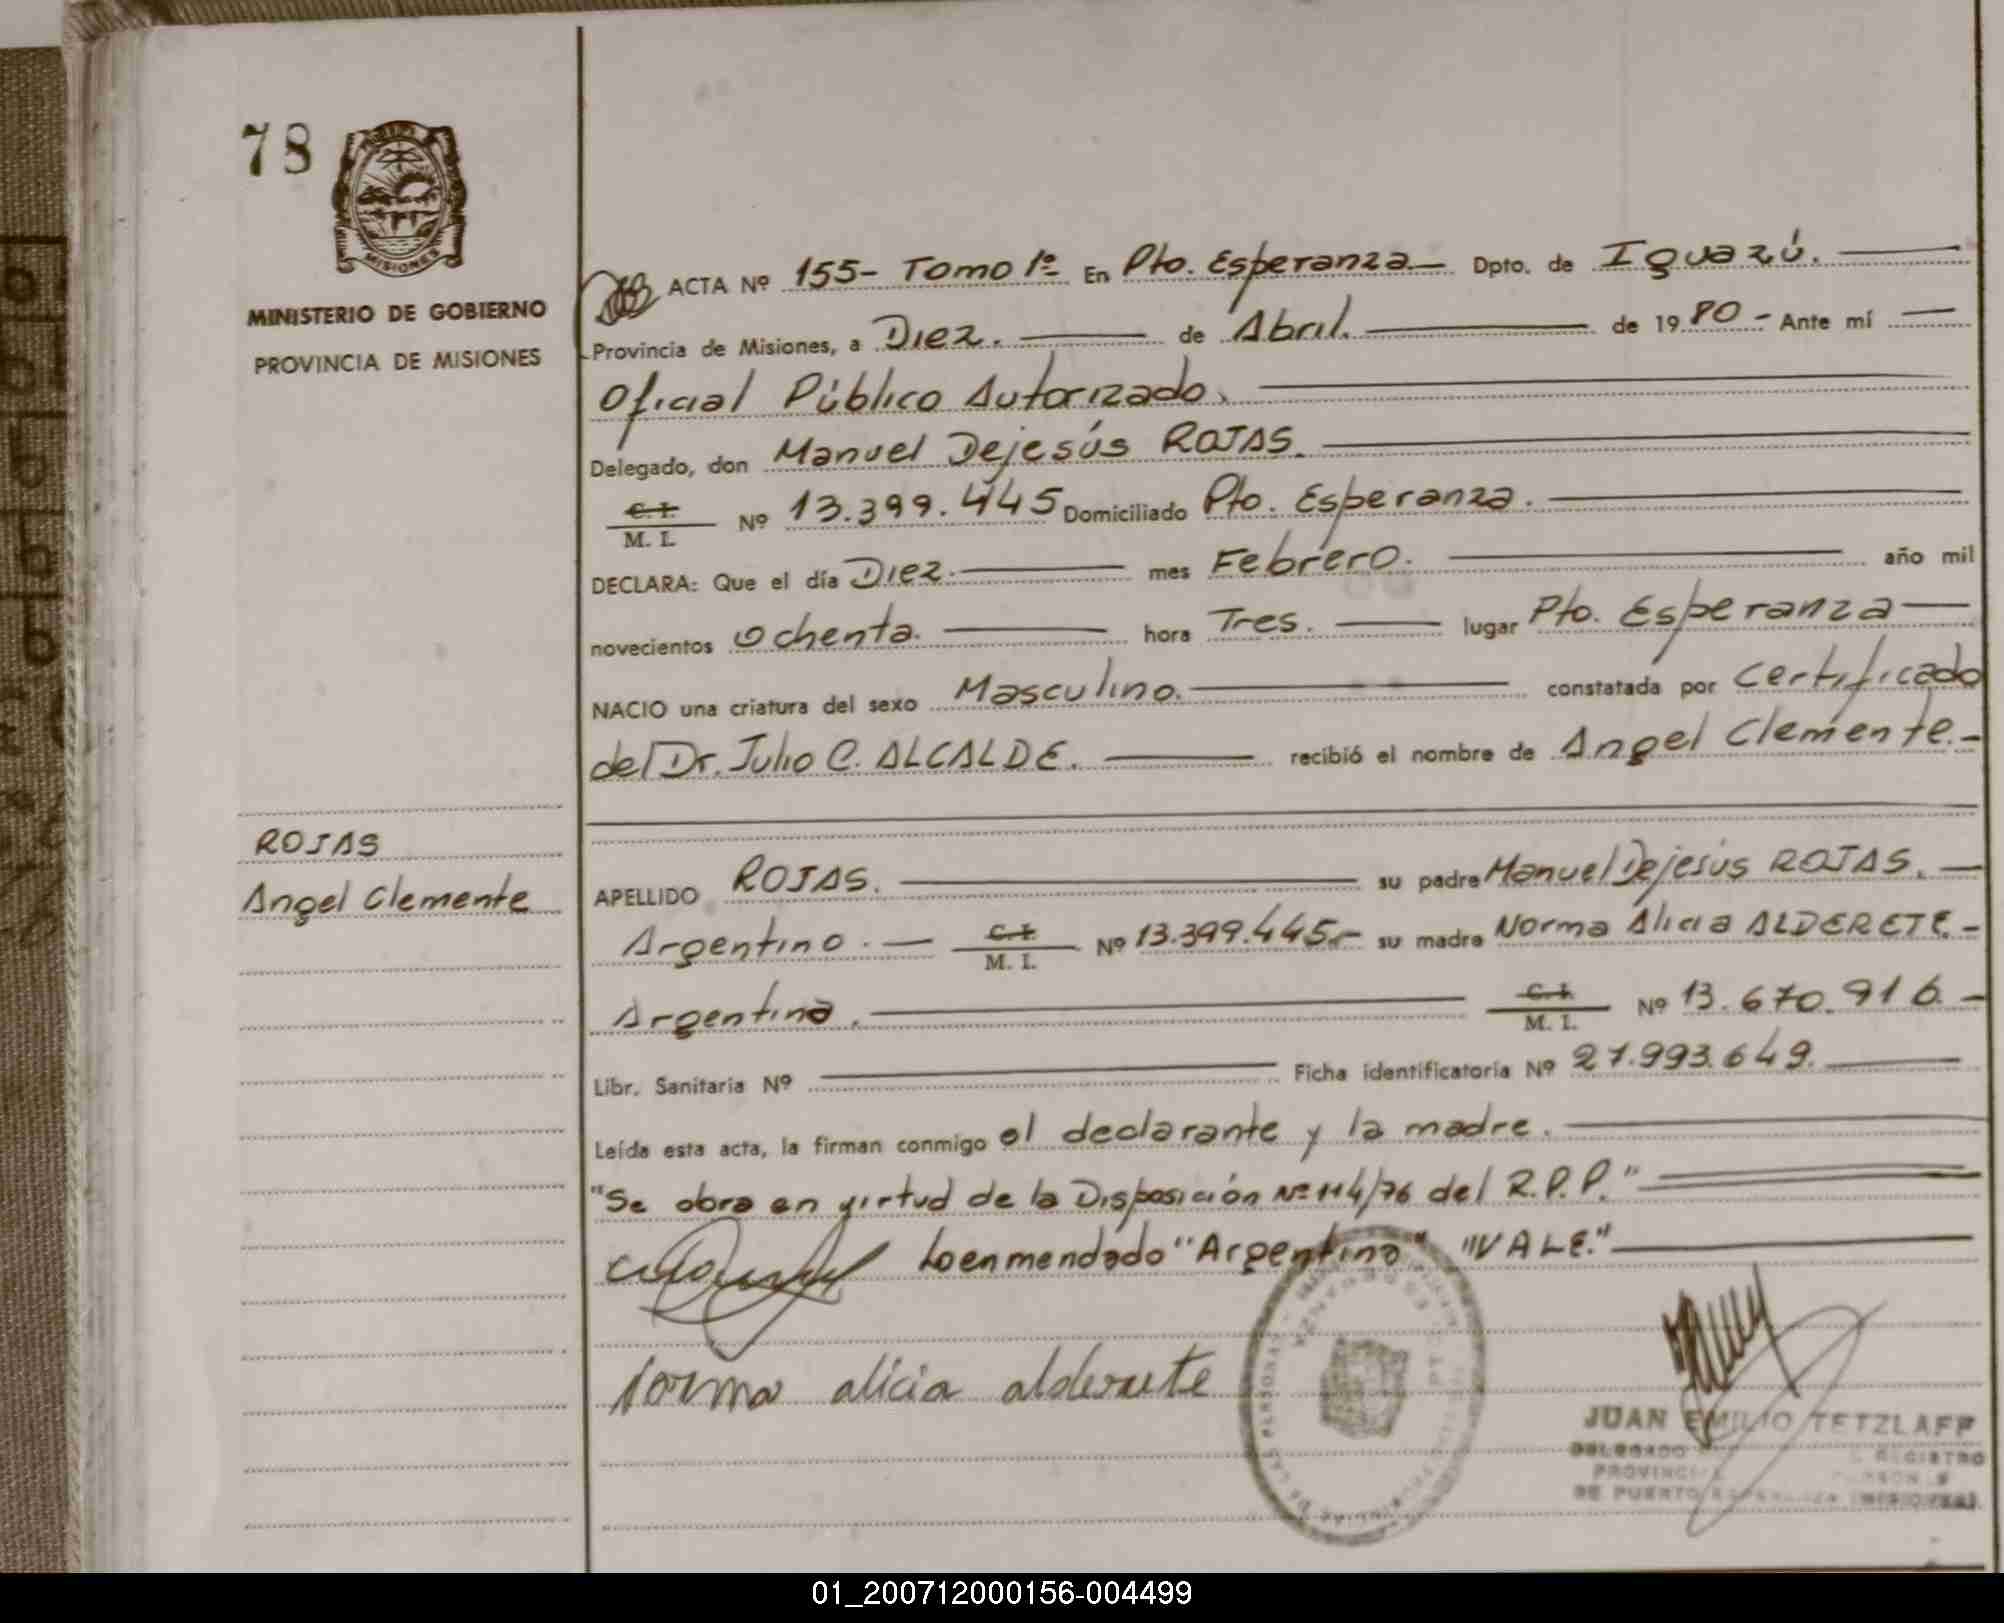 78
MISIONES
MINISTERIO DE GOBIERNO
PROVINCIA DE MISIONES
ROJAS
Angel Clemente
ACTA Nº 155- Tomo 1º En Pto. Esperanza Dpto. de Iguazú.
Provincia de Misiones, a Diez. de Abril. de 1980 - Ante mí
Oficial Público Autorizado.
Delegado, don Manuel Dejesús ROJAS.
C. I.
M. I. Nº 13.399.445 Domiciliado Pto. Esperanza.
DECLARA: Que el día Diez. mes Febrero. año mil
novecientos Ochenta. hora Tres. lugar Pto. Esperanza
NACIO una criatura del sexo Masculino. constatada por Certificado
del Dr. Julio C. ALCALDE. recibió el nombre de Angel Clemente.-
APELLIDO ROJAS. su padre Manuel Dejesús ROJAS.
Argentino. C. I. M. I. Nº 13.399.445.- su madre Norma Alicia ALDERETE.-
Argentina. C. I. M. I. Nº 13.670.916.-
Libr. Sanitaria Nº Ficha identificatoria Nº 27.993.649.
Leída esta acta, la firman conmigo el declarante y la madre.
"Se obra en virtud de la Disposición Nº 114/76 del R.P.P."
Lo enmendado "Argentina" "VALE."
norma alicia alderete
JUAN EMILIO TETZLAFF
DELEGADO REGISTRO
PROVINCIAL
DE PUERTO ESPERANZA (MISIONES)
01_200712000156-004499